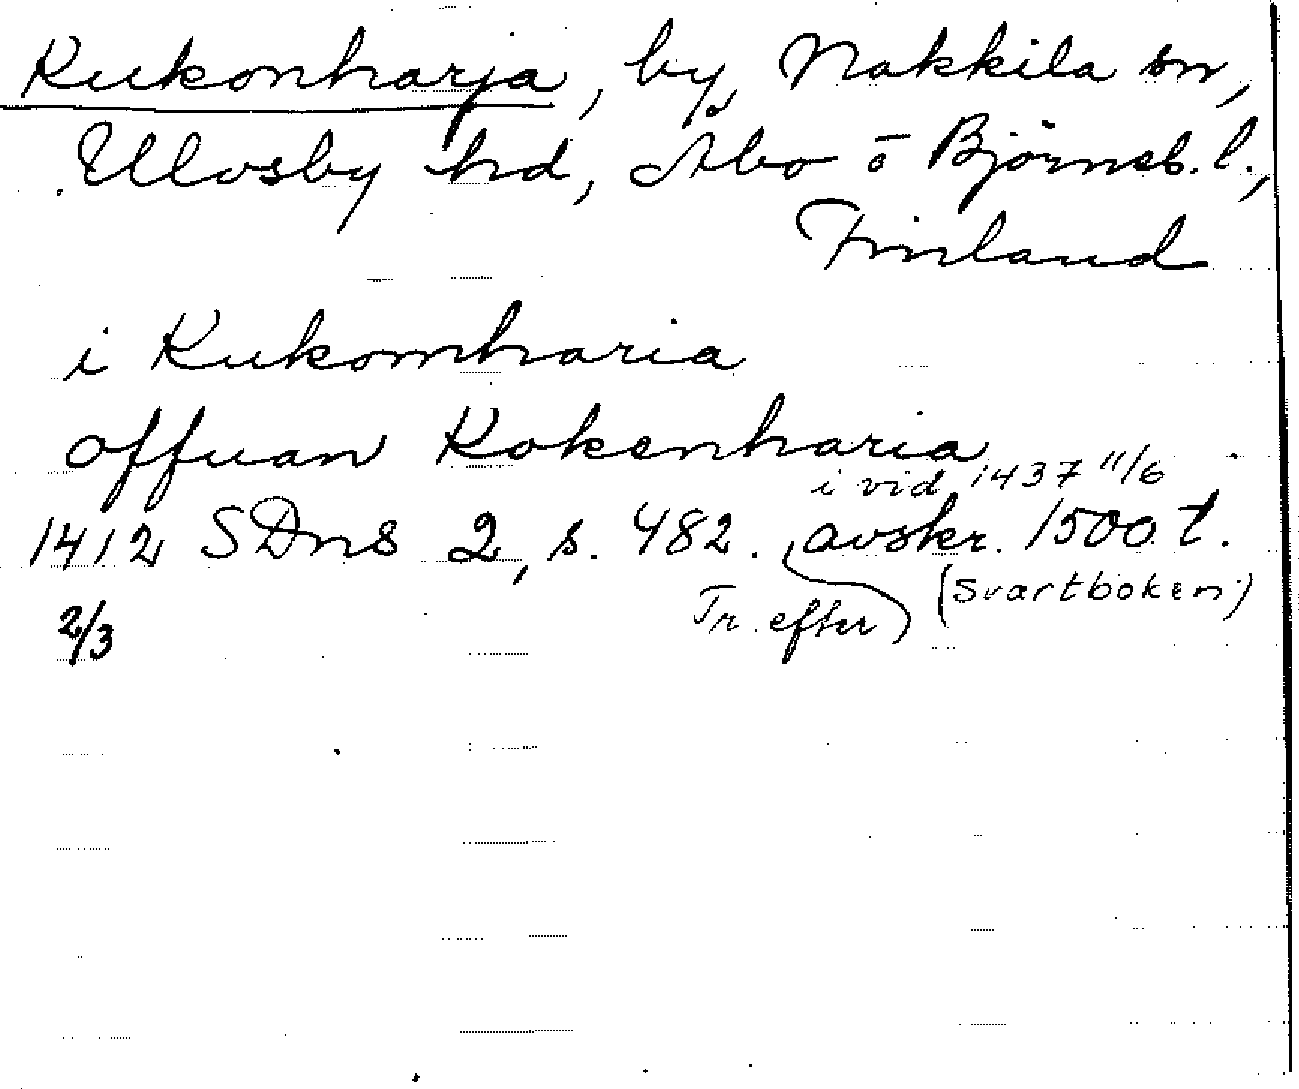 Kukonharja, by, Nakkila sn,
Ulvsby hd, Åbo o Björneb. l.,
Finland
i Kukomharia
offuan Kokenharia
i vid. 1437 11/6
1412 SDns 2, s. 482. avskr. 1500 t.
(Svartboken)
Tr. efter
2/3